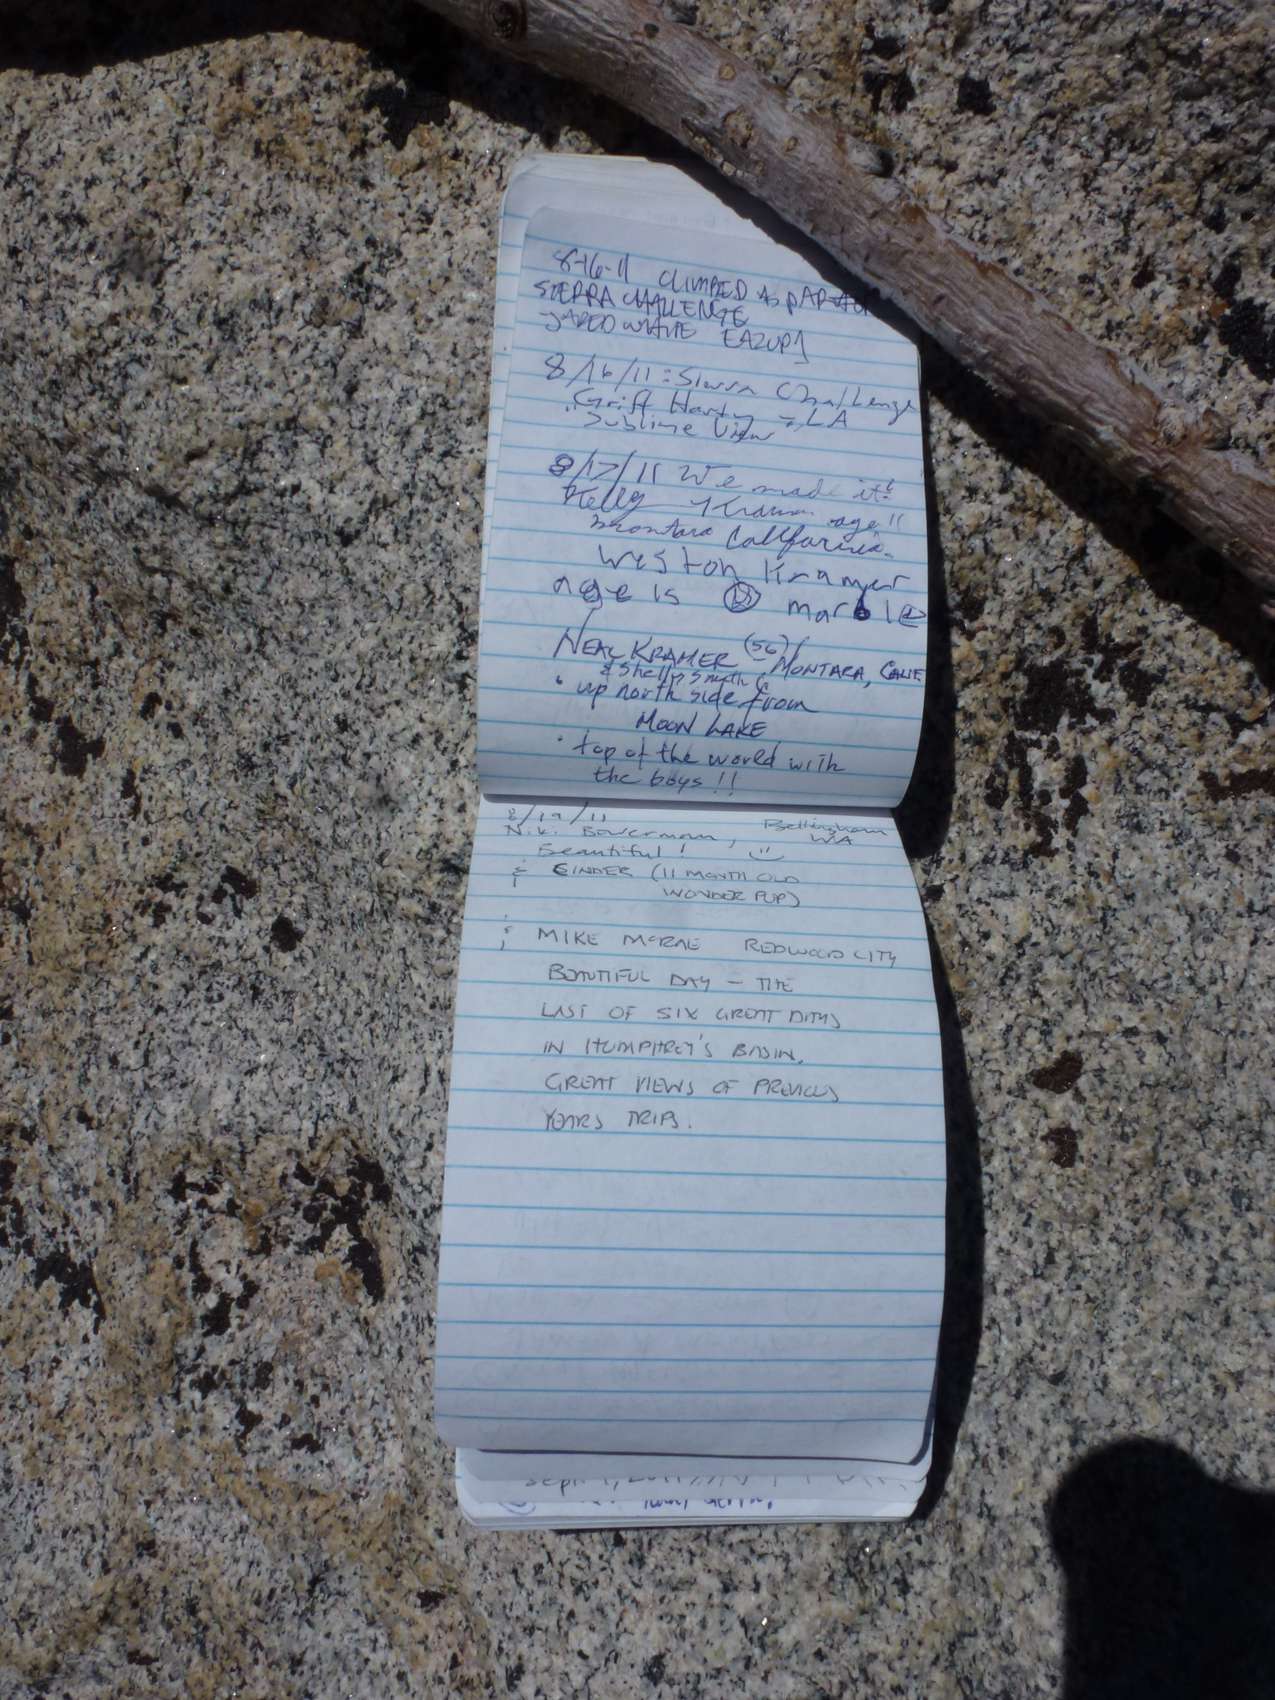 8-16-11 CLIMBED AS PART OF
SIERRA CHALLENGE
8/16/11: Sierra Challenge
LA
Sublime View
8/17/11 We made it!
Kelly Kramer age 11
Montara California.
Weston Kramer
age is marble
NEAL KRAMER (56) MONTARA, CALIF
& Shelly Smith
• up north side from
MOON LAKE
• top of the world with
the boys!!
8/19/11
Niki Bowerman, Bellingham
WA
Beautiful!
& CINDER (11 MONTH OLD
WONDER PUP)
& MIKE MCRAE REDWOOD CITY
BEAUTIFUL DAY – THE
LAST OF SIX GREAT DAYS
IN HUMPHREY'S BASIN.
GREAT VIEWS OF PREVIOUS
YEARS TRIPS.